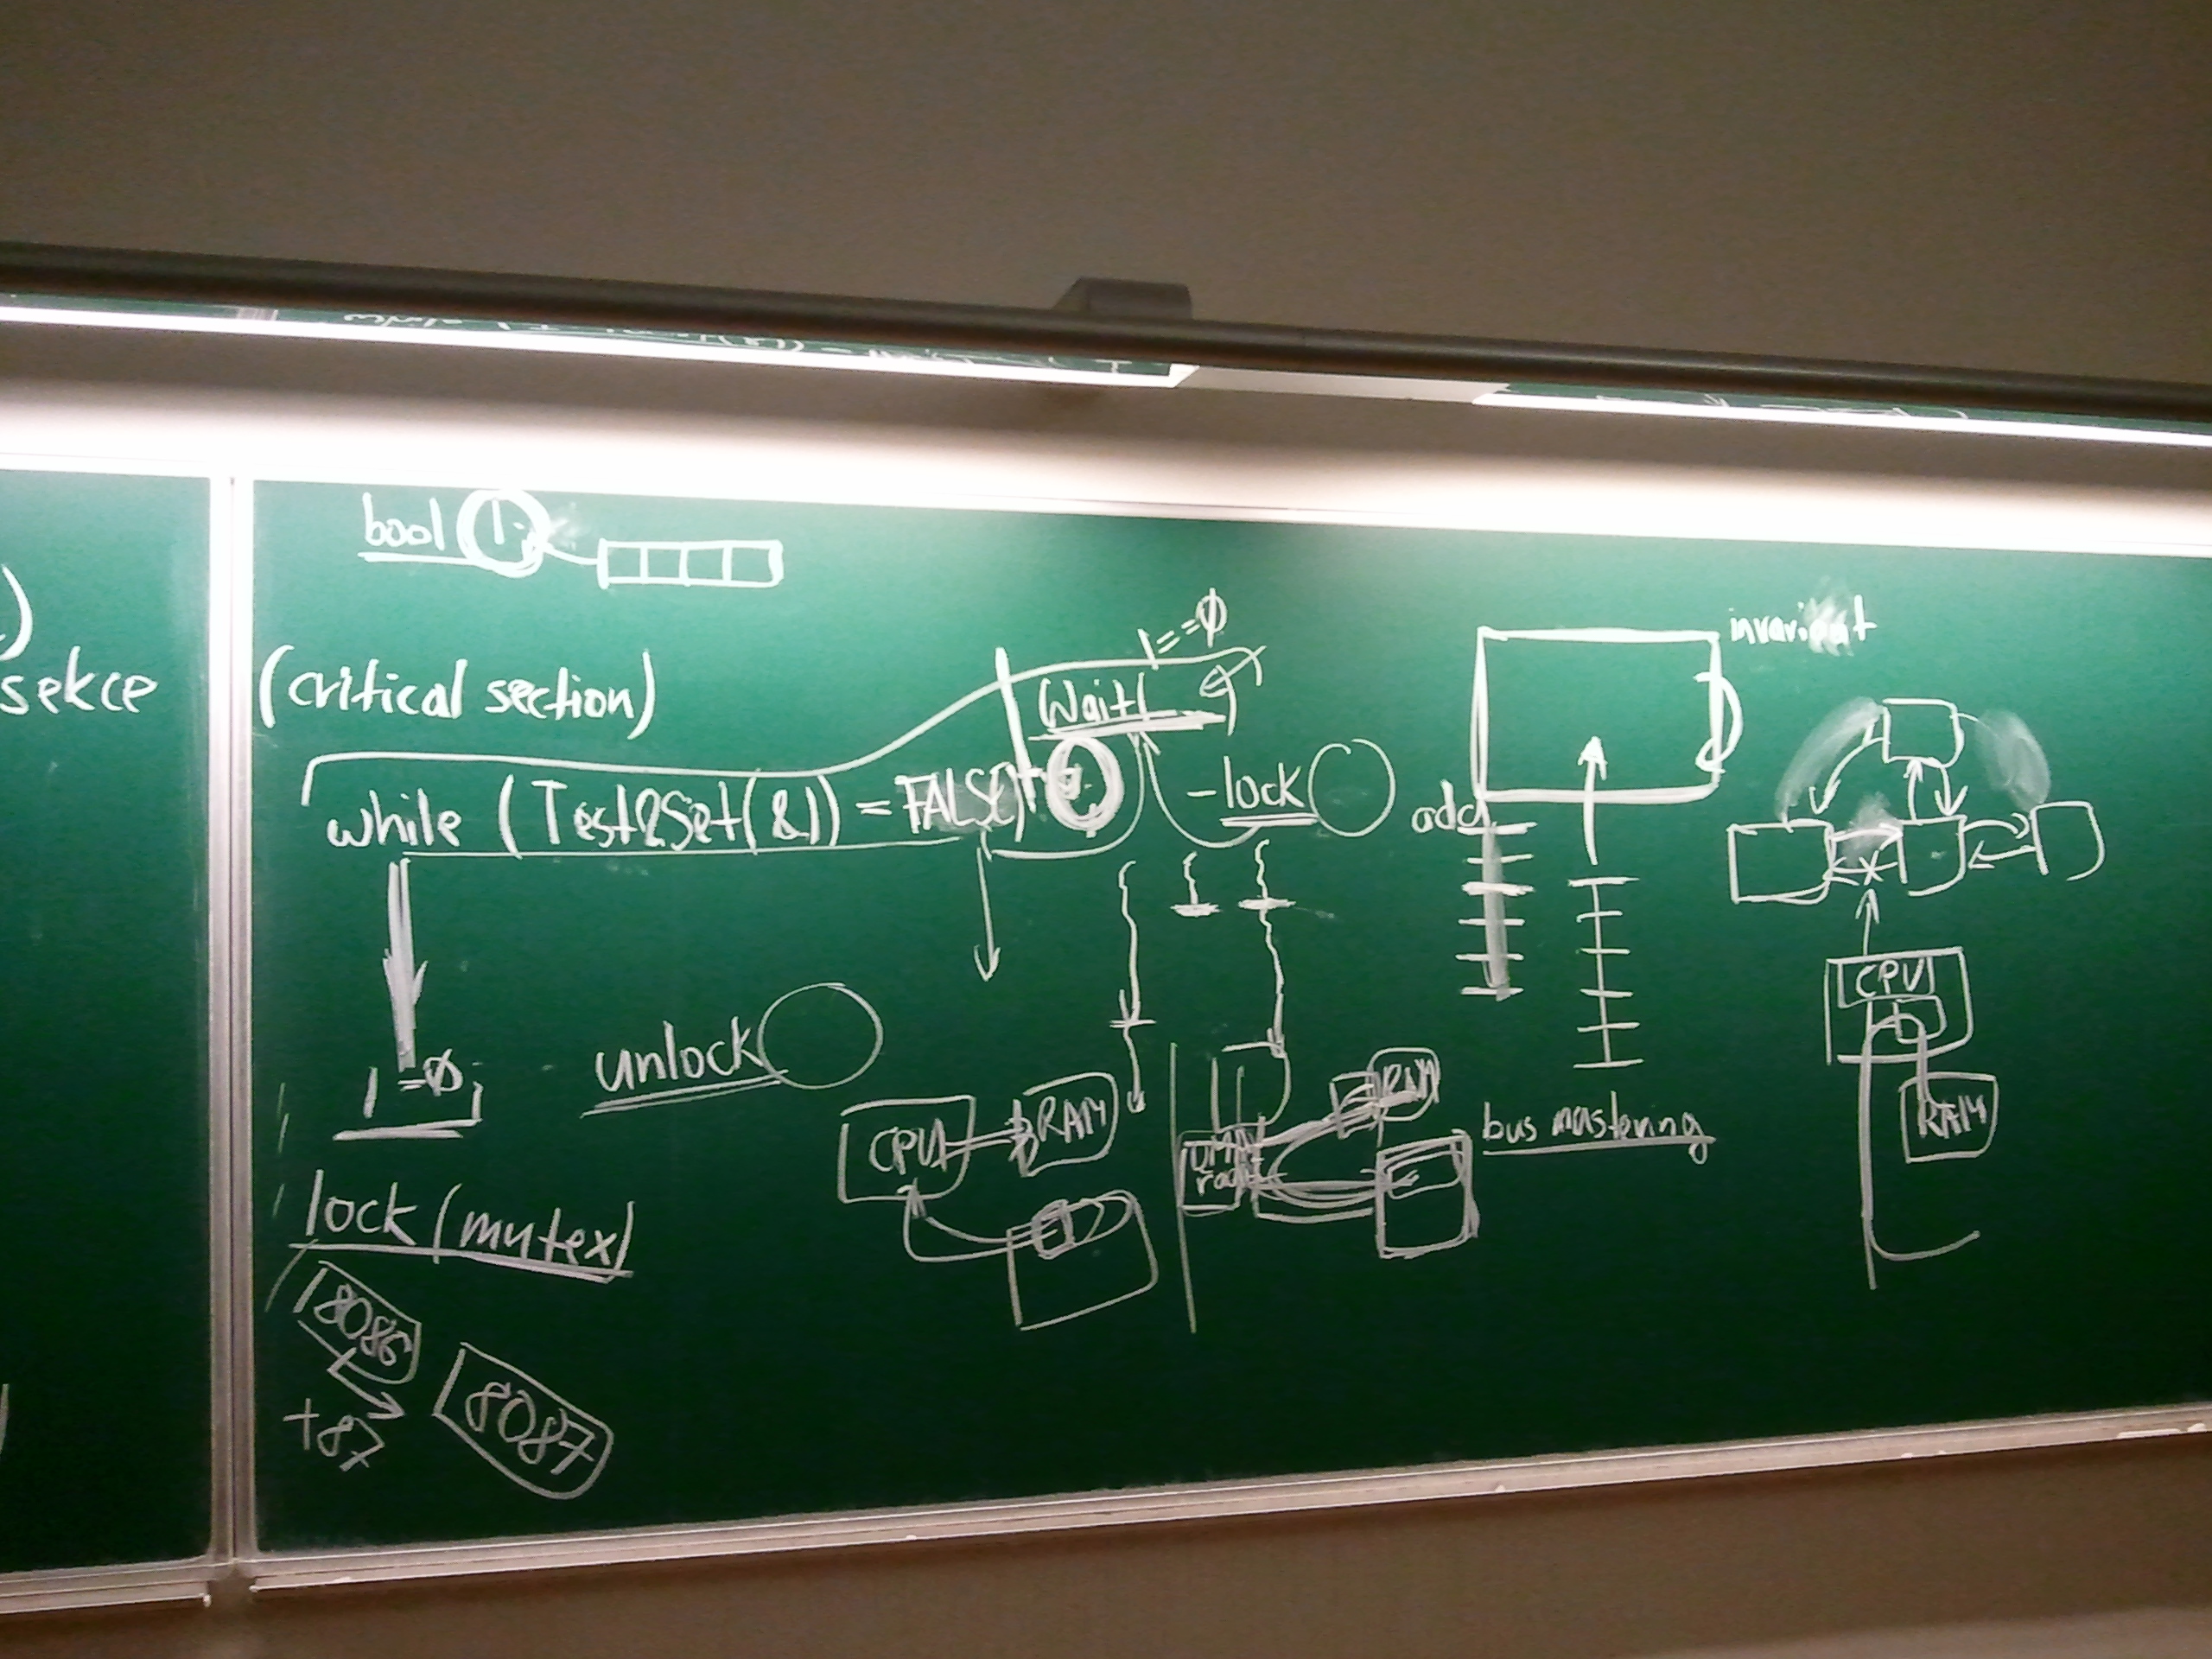 sekce
bool l
(critical section)
l==0
Wait(
invariant
while (Test&Set(&l)) = FALSE)
-lock
add
l=0;
unlock
CPU
RAM
RAM
CPU
RAM
bus mastering
lock (mutex)
8086
+87
8087